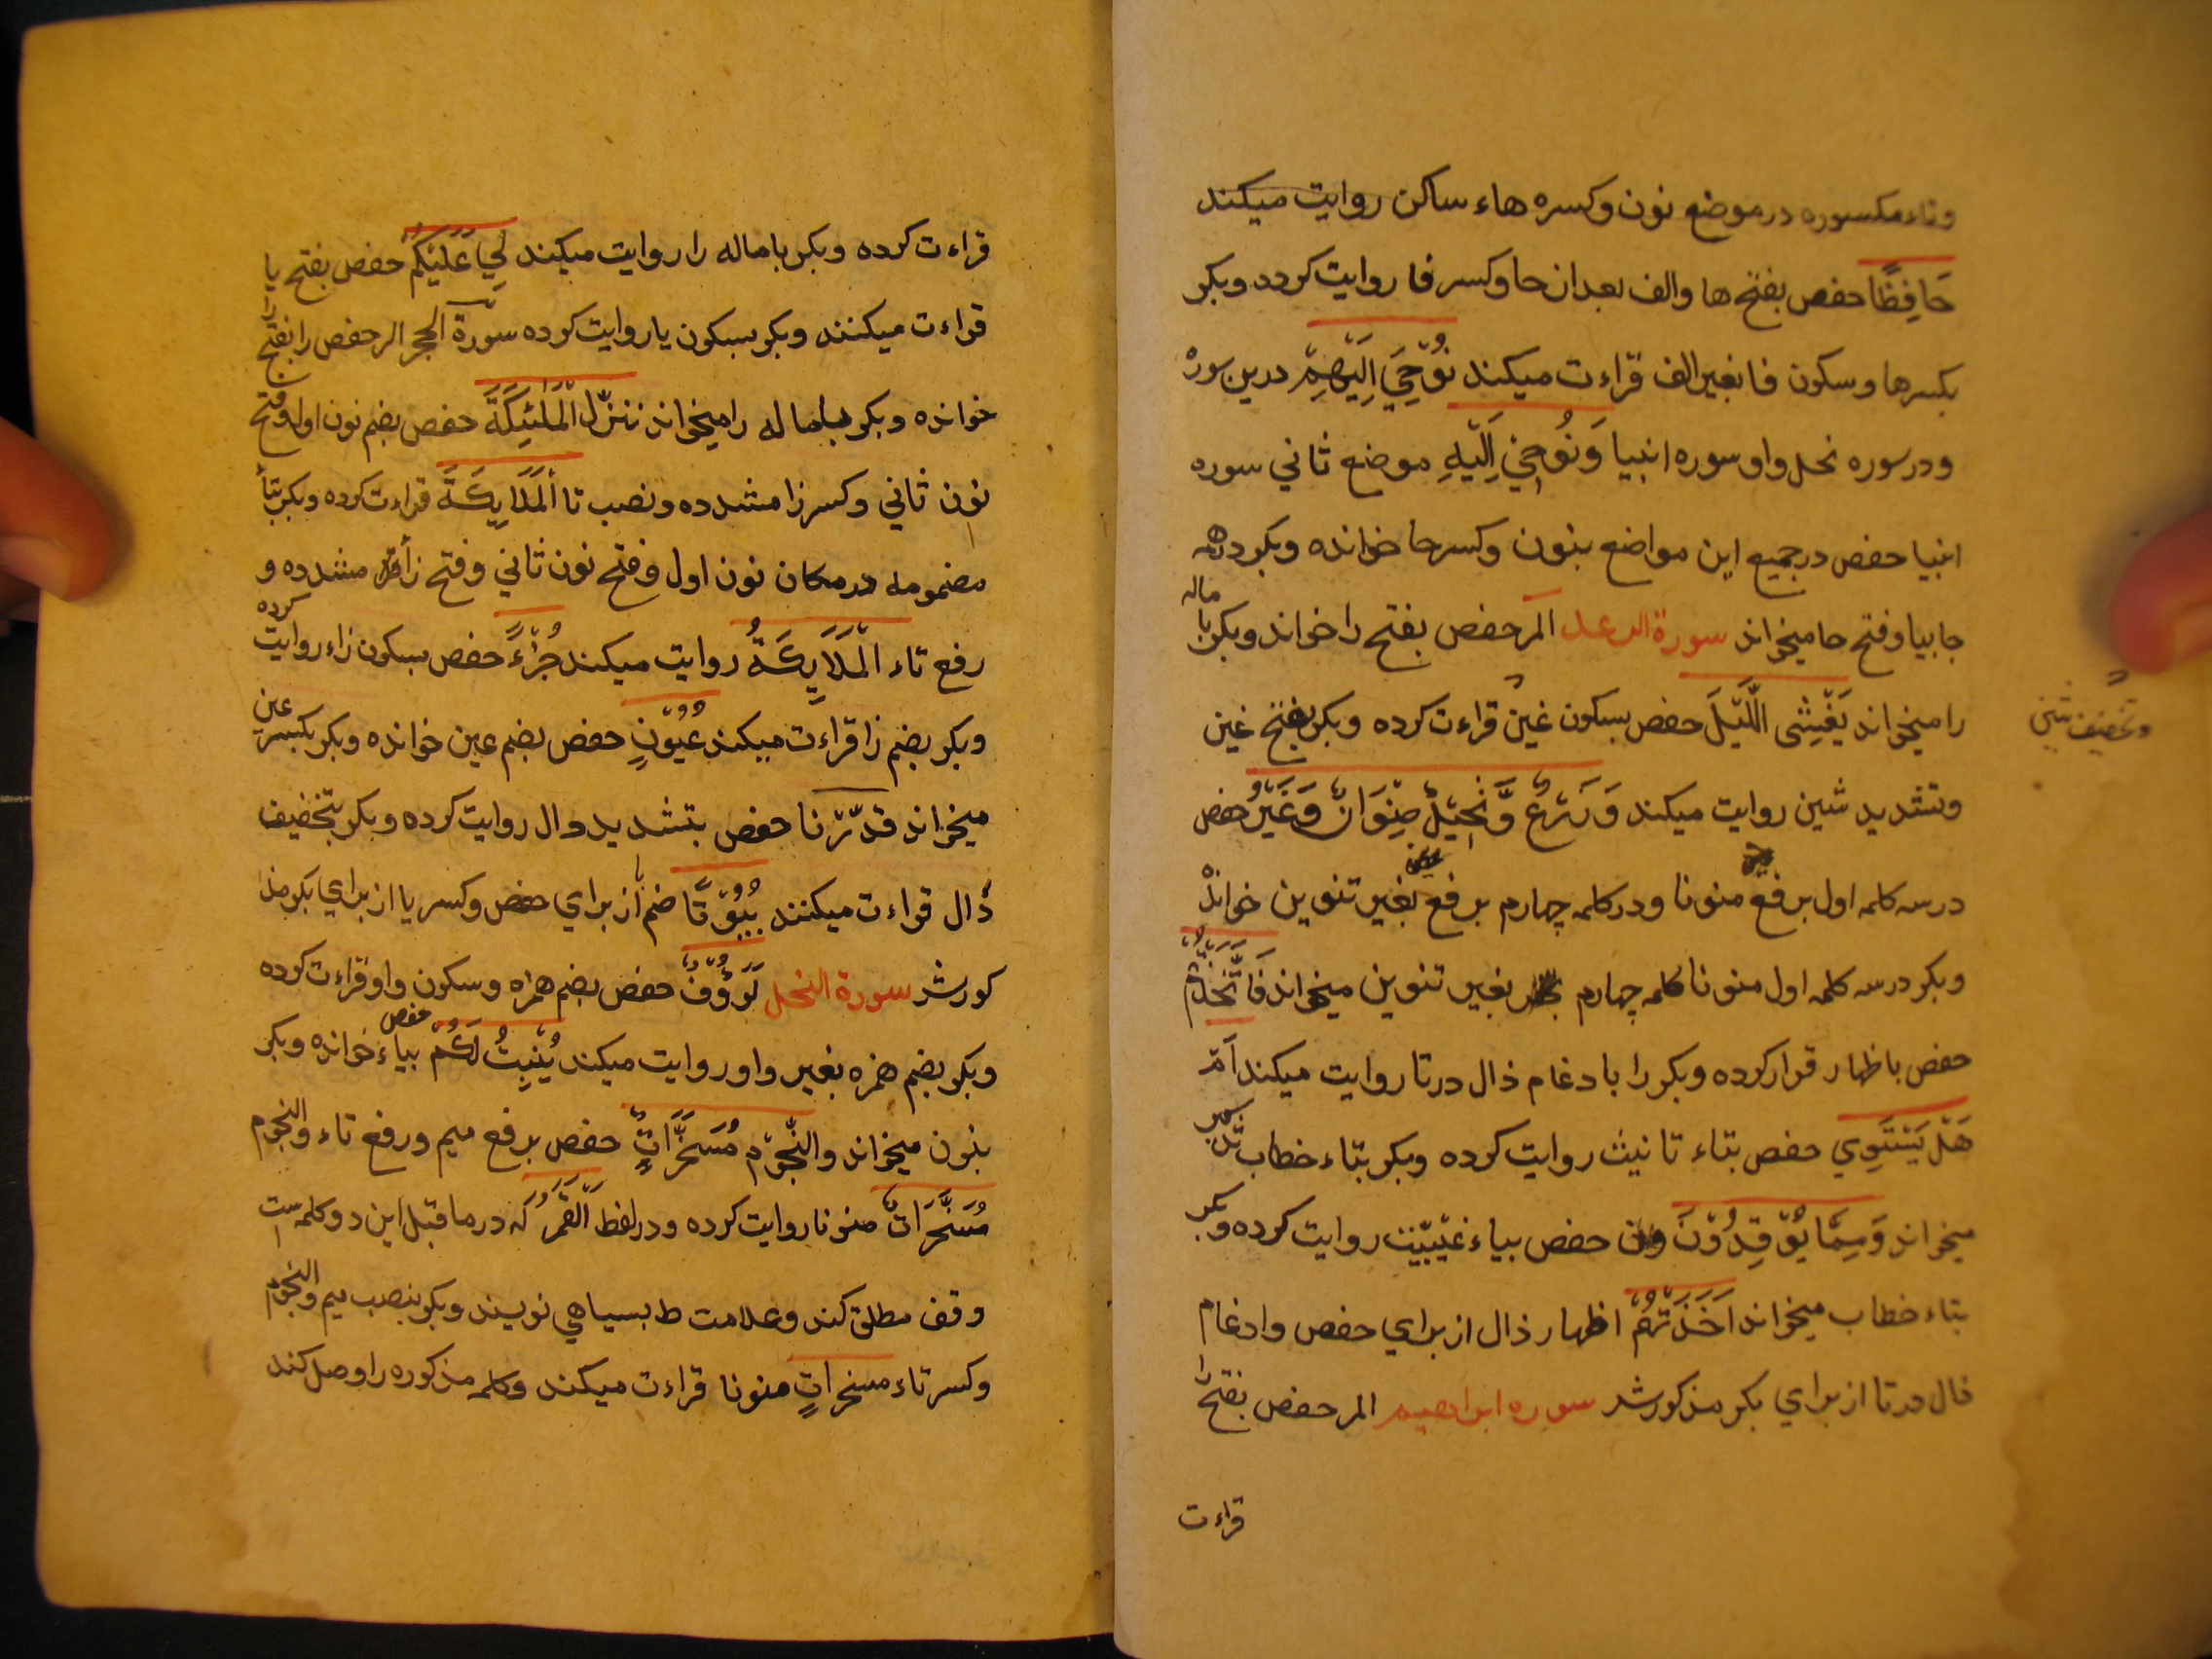 وتاء مكسوره در موضع نون وكسره هاء ساكن روايت ميكند
حَافِظًا حفص بفتح ها والف بعد ان حا وكسر فا روايت كرده وبكر
بكسر ها وسكون فا بغير الف قراءت ميكند نُوْحِيْ اِلَيْهِمْ درين سوره
ودر سوره نحل واو سوره انبيا وَنُوحِيْ اِلَيْهِ موضع ثاني سوره
انبيا حفص در جميع اين مواضع بنون وكسر حا خوانده وبكر در همه
جا بيا وفتح حا ميخواند سورة الرعد المر حفص بفتح را خواند وبكر باماله
را ميخواند يَغْشِى اللَّيْلَ حفص بسكون غين قراءت كرده وبكر بفتح غين
وتخفيف شين
وتشديد شين روايت ميكند وَزَرْعٌ وَّنَخِيْلٌ صِنْوَانٌ وَغَيْرُ حفص
در سه كلمه اول برفع منونا ودر كلمه چهارم برفع بغير تنوين خوانده
وبكر در سه كلمه اول منونا كلمه چهارم بغير تنوين ميخواند فَاتَّخَذْتُمْ
حفص باظهار قرار كرده وبكر را بادغام ذال در تا روايت ميكند اَمْ
هَلْ يَسْتَوِي حفص بتاء تانيث روايت كرده وبكر بتاء خطاب
ميخواند وَمِمَّا يُوْقِدُوْنَ حفص بياء غيبت روايت كرده وبكر
بتاء خطاب ميخواند اَخَذْتُهُمْ اظهار ذال از براي حفص وادغام
ذال در تا از براي بكر مذكور شد سوره ابراهيم المر حفص بفتح را
قراءت
قراءت كرده وبكر باماله را روايت ميكند لِيَ عَلَيْكُمْ حفص بفتح يا
قراءت ميكنند وبكر بسكون يا روايت كرده سورة الحجر الر حفص را بفتح را
خوانده وبكر باماله را ميخواند ننزّل الْمَلٰئِكَةَ حفص بضم نون اول وفتح
نون ثاني وكسر زا مشدده ونصب تا الْمَلَايِكَةَ قراءت كرده وبكر بتاء
مضمومه در مكان نون اول وفتح نون ثاني وفتح زا مشدده و
رفع تاء الْمَلَايِكَةُ روايت ميكند جُزْءً حفص بسكون زاء روايت كرده
وبكر بضم زا قراءت ميكند عُيُوْنٍ حفص بضم عين خوانده وبكر بكسر عين
ميخواند قدّرْنا حفص بتشديد دال روايت كرده وبكر بتخفيف
دال قراءت ميكنند بُيُوْتًا ضم با از براي حفص وكسر با از براي بكر مذ
كور شد سورة النحل لَرَؤُوْفٌ حفص بضم همزه وسكون واو قراءت كرده
وبكر بضم همزه بغير واو روايت ميكند يُنْبِتُ لَكُمْ حفص بياء خوانده وبكر
بنون ميخواند والنُّجُوْم مُسَخَّرَاتٌ حفص برفع ميم ورفع تاء والنجوم
مُسَخَّرَاتٌ منونا روايت كرده ودر لفظ الْقَمَرُ كه در ما قبل اين دو كلمه است
وقف مطلق كند وعلامت ط بسياهي نويسند وبكر بنصب ميم والنجوم
وكسر تاء مسخراتٍ منونا قراءت ميكند وكلمه مذكوره را وصل كند